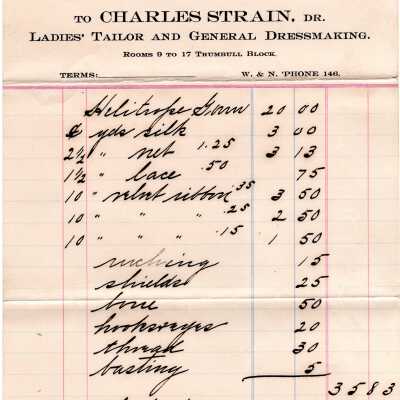 TO CHARLES STRAIN, DR.
LADIES' TAILOR AND GENERAL DRESSMAKING.
ROOMS 9 TO 17 TRUMBULL BLOCK.
TERMS: W. & N. 'PHONE 146.
Helitrope Gown 20 00
yds silk 3 00
2 1/2 " net 1.25 3 13
1 1/2 " lace .50 75
10 " velvet ribbon .35 3 50
10 " " " .25 2 50
10 " " " .15 1 50
ruching 15
shields 25
bone 50
hooks & eyes 20
thread 30
basting 5
35 83